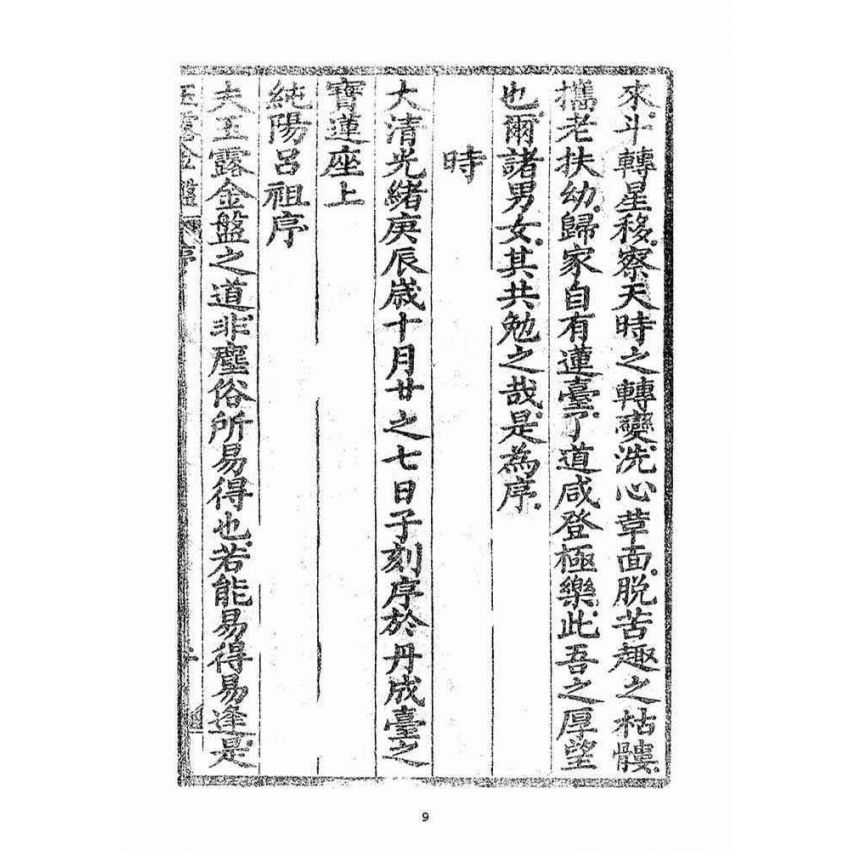 來斗轉星移察天時之轉變洗心革面脫苦趣之枯髏
攜老扶幼歸家自有蓮臺了道咸登極樂此吾之厚望
也爾諸男女其共勉之哉是為序
時
大清光緒庚辰歲十月廿之七日子刻序於丹成臺之
寶蓮座上
純陽呂祖序
夫玉露金盤之道非塵俗所易得也若能易得易逢是
玉露金盤 序
9